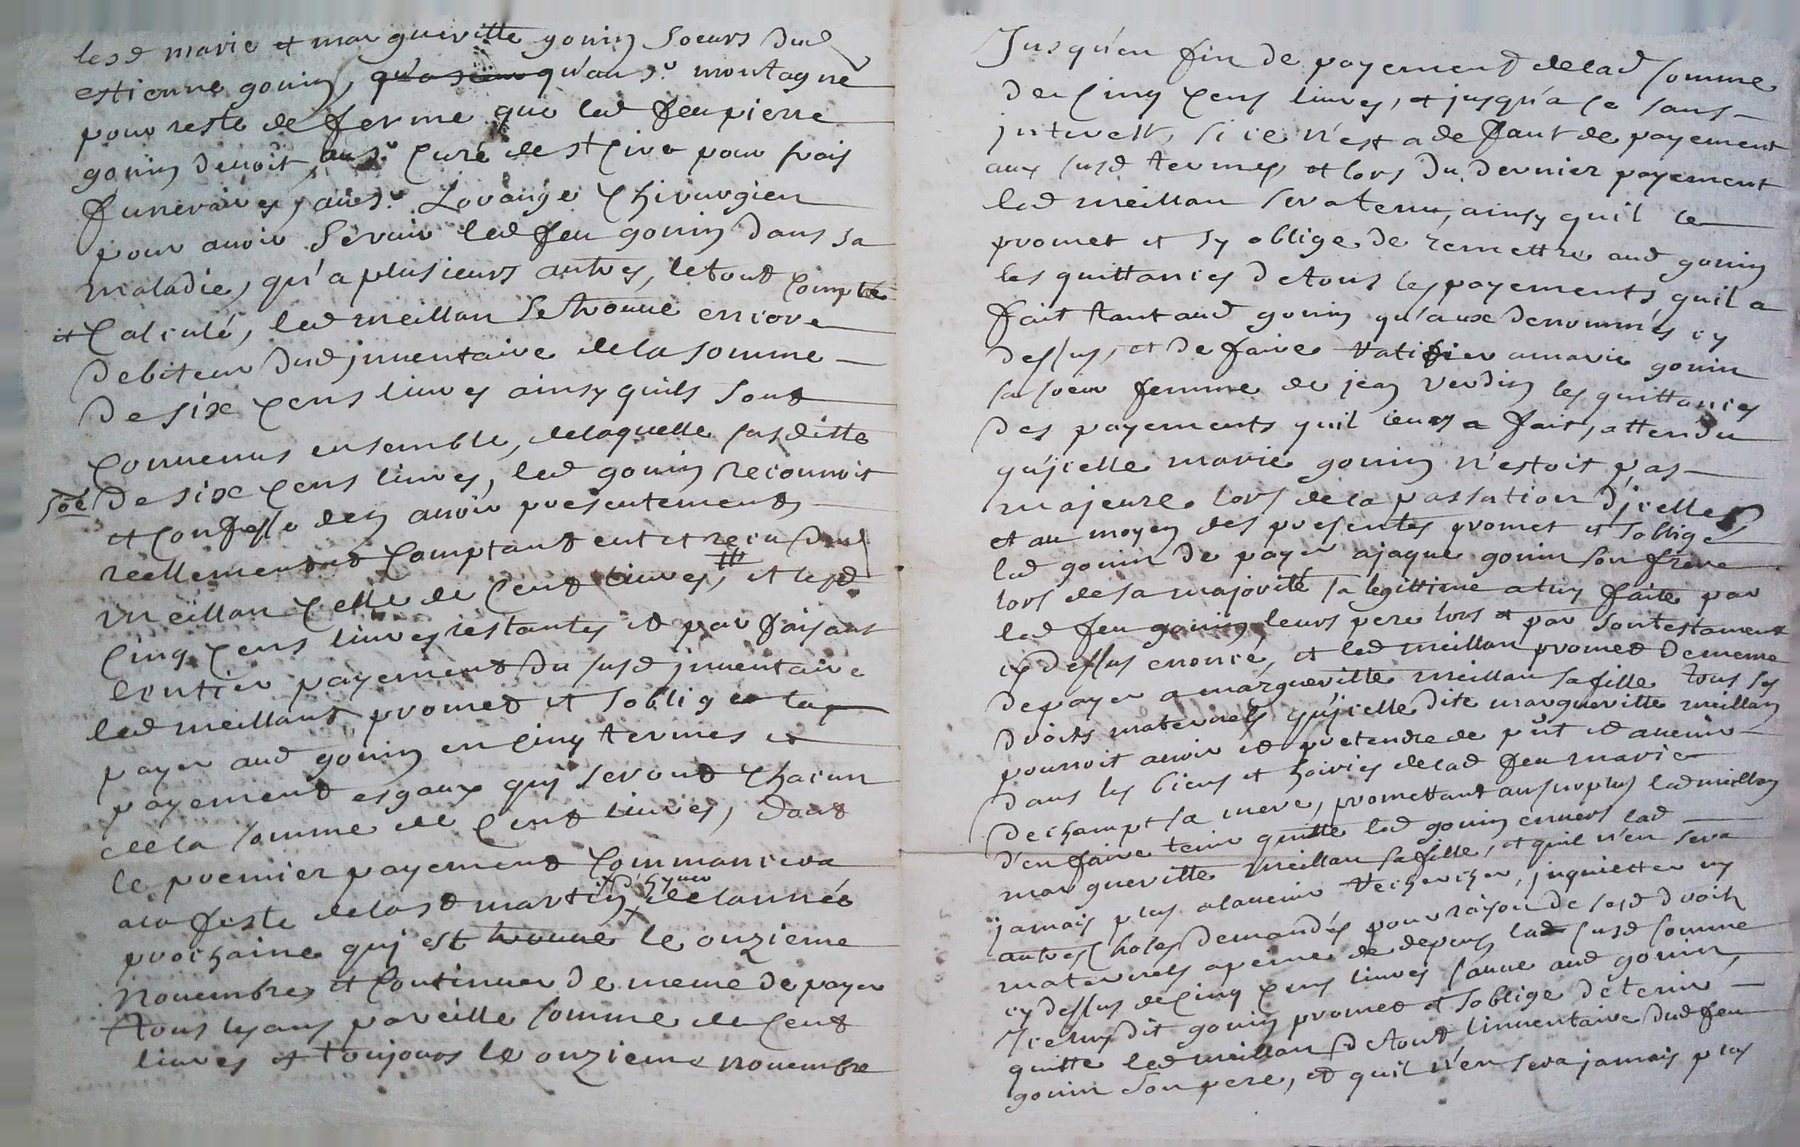 lesd marie et margueritte gonin soeurs dud
estienne gonin, qu'au sr montagne
pour reste de ferme que led feu pierre
gonin devoit, au sr Curé de st Cire pour frais
funeraires, au sr Lorange Chirurgien
pour avoir servir led feu gonin dans sa
maladie, qu'a plusieurs autres, le tout Compté
et Calculé, led meillan se trouve encore
debiteur dud inventaire de la somme
de six Cens livres ainsy quils sont
Convenus ensemble, de laquelle susditte
soe de six Cens livres, led gonin reconnoit
et Confesse den avoir presentement
reellement et Comptant eut et receu dud
meillan Celle de Cent livres, et lesd
Cinq Cens livres restantes et parfaisant
lentier payement du susd inventaire
led meillant promet et soblige
payer aud gonin en Cinq termes et
payement esgaux qui seront Chacun
de la somme de Cent livres, dont
le premier payement Commancera
a la feste de la st martin d'hyver de lannée
prochaine qui est le onzieme
novembre, et Continuer de meme de payer
tous les ans pareille somme de Cent
livres et toujours le onzieme novembre
Jusqu'en fin de payement de lad somme
de Cinq Cens livres, et jusqu'a ce sans
interest, si ce n'est a defaut de payement
aux susd termes et lors du dernier payement
led meillan sera tenu, ainsy quil le
promet et sy oblige de remettre aud gonin
les quittances de tous les payements quil a
fait tant aud gonin qu'aux denommés cy
dessus, et de faire ratifier a marie gonin
sa soeur femme de jean verdin les quittances
des payements quil leurs a fait, attendu
qu'icelle marie gonin n'estoit pas
majeure lors de la passation d'jcelles
et au moyen des presentes promet et soblige
led gonin de payer a jaque gonin son frere
lors de sa majorité sa legittime a luy faite par
led feu gonin leurs pere lors et par son testament
cy dessus enoncé, et led meillan promet de meme
de payer a margueritte meillan sa fille tous ses
droits maternels qu'icelle dite margueritte meillan
pourroit avoir et pretendre de put et avenir
dans les biens et hoiries de lad feu marie
dechampt sa mere, promettant au surplus led meillan
d'en faire tenir quitte led gonin envers lad
margueritte meillan sa fille, et quil n'en sera
jamais plus a lavenir rechercher, inquietter ny
autres Choses demandés pour raison de sesd droits
maternels a peine de depens lad susd somme
cy dessus de Cinq Cens livres sauve aud gonin,
Jceluy dit gonin promet et soblige de tenir
quitte led meillan de tout linventaire dud feu
gonin son pere, et quil n'en sera jamais plus